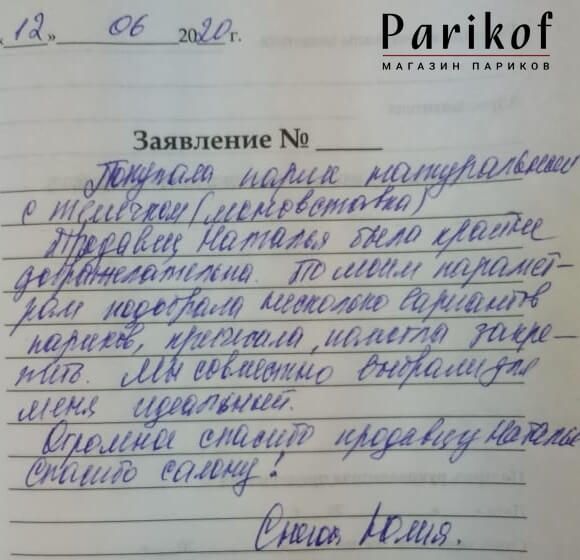 « 12 » 06 2020 г.
Parikof
МАГАЗИН ПАРИКОВ
Заявление № ____
Покупала парик натуральный
с темечком (моновставка)
Продавец Наталья была крайне
доброжелательна. По моим парамет-
рам подобрала несколько вариантов
париков, причесала, помогла закре-
пить. Мы совместно выбрали для
меня идеальный.
Огромное спасибо продавцу Наталье
Спасибо салону!
Юлия.